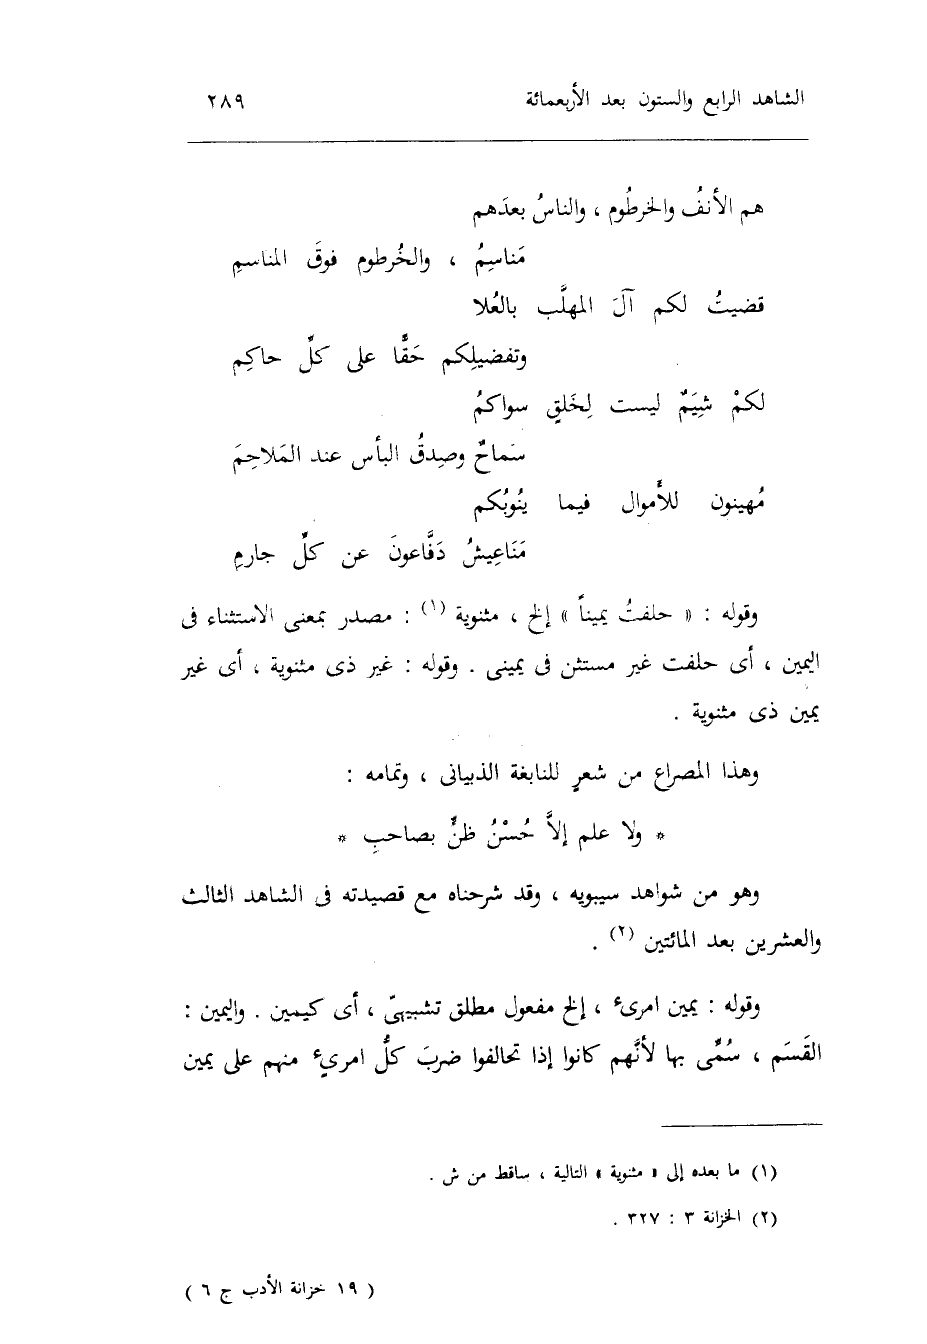 الشاهد الرابع والستون بعد الأربعمائة ٢٨٩
هم الأنفُ والخرطُوم ، والناسُ بعدَهم
مَناسِمُ ، والخُرطوم فوقَ المناسمِ
قضيتُ لكم آلَ المهلَّب بالعُلا
وتفضيلِكم حَقًّا على كلِّ حاكِم
لكمْ شِيَمٌ ليست لِخَلقٍ سواكمُ
سَماحٌ وصِدقُ البأس عند المَلاحِمَ
مُهينون للأَموال فيما ينُوبُكم
مَنَاعِيشُ دَفَّاعونَ عن كلِّ جارمِ
وقوله : « حلفتُ يميناً » إلخ ، مثنوية (١) : مصدر بمعنى الاستثناء فى
اليمين ، أى حلفت غير مستثن فى يمينى . وقوله : غير ذى مثنوية ، أى غير
يمين ذى مثنوية .
وهذا المصراع من شعرٍ للنابغة الذبيانى ، وتمامه :
* ولا علم إلاَّ حُسْنُ ظنٍّ بصاحبِ *
وهو من شواهد سيبويه ، وقد شرحناه مع قصيدته فى الشاهد الثالث
والعشرين بعد المائتين (٢) .
وقوله : يمين امرىء ، إلخ مفعول مطلق تشبيهىّ ، أى كيمين . واليمين :
القَسَم ، سُمِّى بها لأنَّهم كانوا إذا تحالفوا ضربَ كلُّ امرىءٍ منهم على يمين
(١) ما بعده إلى « مثنوية » التالية ، ساقط من ش .
(٢) الخزانة ٣ : ٣٢٧ .
( ١٩ خزانة الأدب ج ٦ )